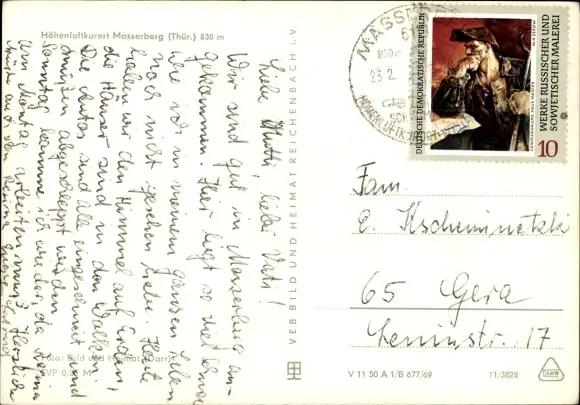 Höhenluftkurort Masserberg (Thür.) 830 m
Liebe Mutti, lieber Vati!
Wir sind gut in Masserberg an-
gekommen. Hier liegt so viel Schnee
wie wir in meinem ganzen Leben
noch nicht gesehen habe. Heute
haben wir den Himmel auf Erden,
die Häuser sind in den Wolken.
Die Autos sind alle eingeschneit und
müssen abgeschleppt werden.
Sonntag komme ich wieder, da
am Montag arbeiten muß. Herzlich
Foto: Bild und Heimat (Darr)
EVP 0.20 M
VEB BILD UND HEIMAT REICHENBACH I. V
MASSERBERG
23.2.
HÖHENLUFTKURORT
DEUTSCHE DEMOKRATISCHE REPUBLIK
WERKE RUSSISCHER UND
SOWJETISCHER MALEREI
10
Fam.
E. Kscheminetzki
65 Gera
Leninstr. 17
V 11 50 A 1/B 677/69
11/3828